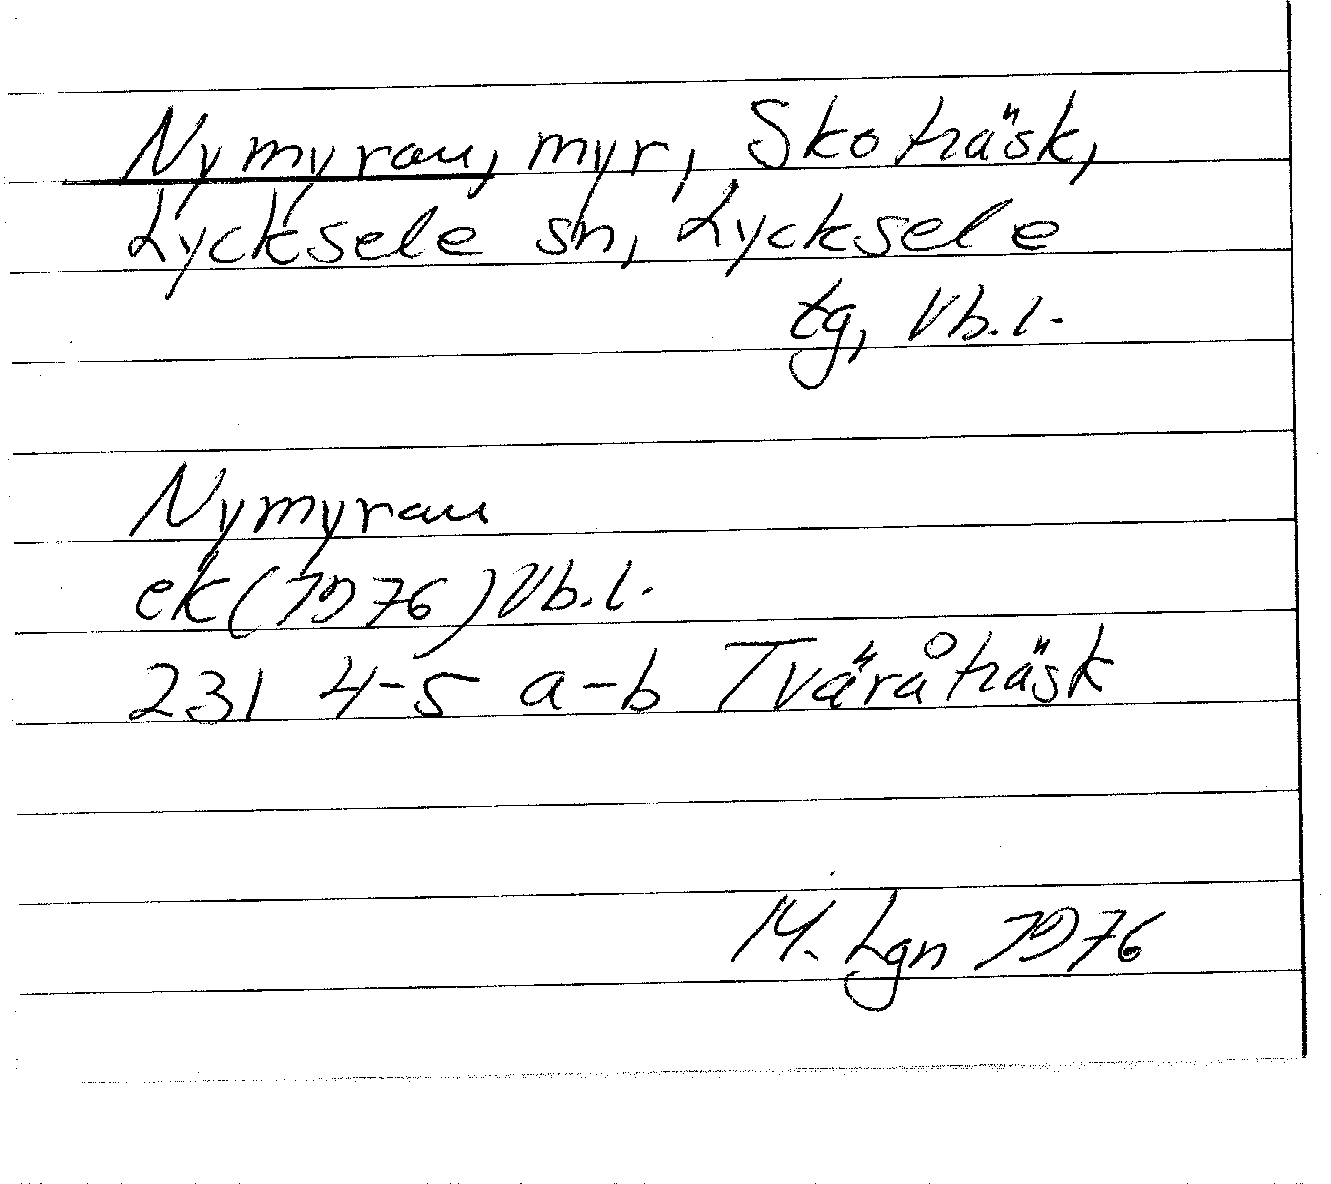 Nymyran, myr, Skoträsk,
Lycksele sn, Lycksele
tg, Vb.l.
Nymyran
ek (1976) Vb.l.
231 4-5 a-b Tväråträsk
M. Lgn 1976